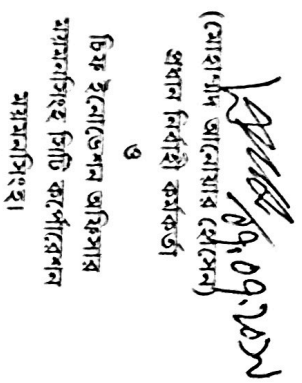 ০৭.০৭.২০২১
(মোহাম্মদ আনোয়ার হোসেন)
প্রধান নির্বাহী কর্মকর্তা
ও
চিফ ইনোভেশন অফিসার
ময়মনসিংহ সিটি কর্পোরেশন
ময়মনসিংহ।